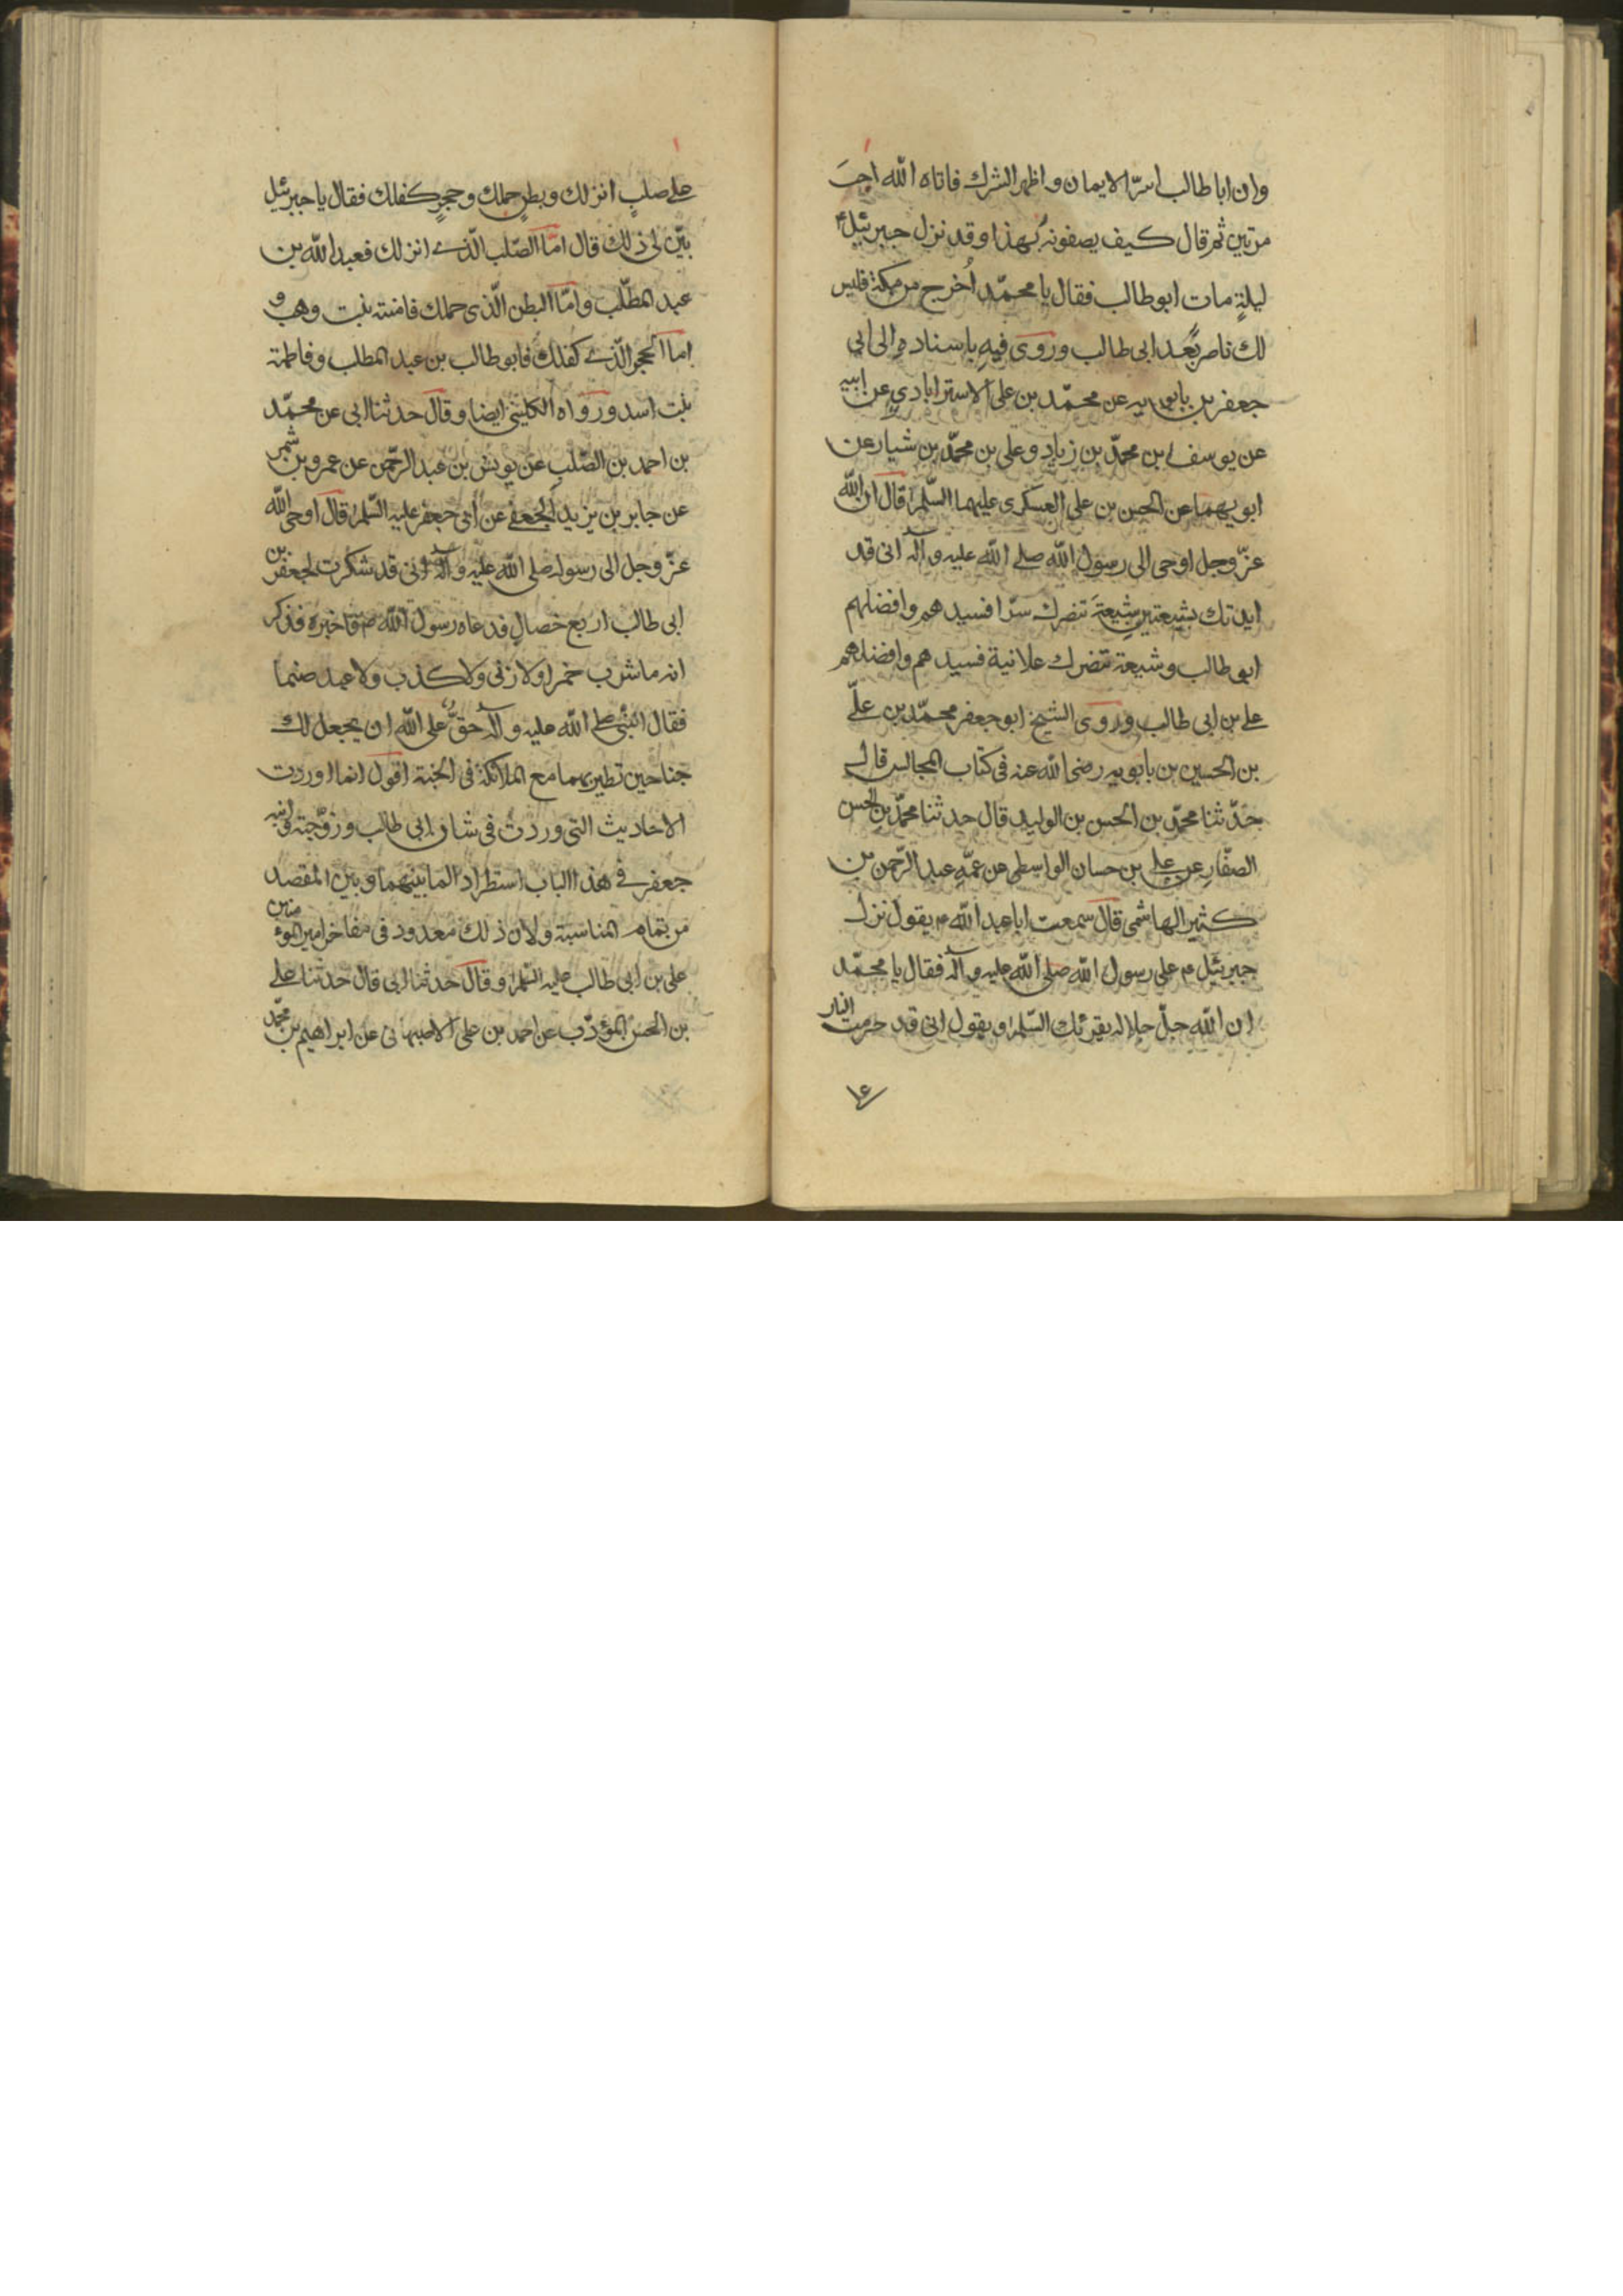 وان ابا طالب اسرّ الايمان و اظهر الشرك فاتاه الله اجره
مرتين ثم قال كيف يصفونه بهذا و قد نزل جبرئيل ع
ليلة مات ابو طالب فقال يا محمّد اُخرج من مكة فليس
لك ناصر بَعد ابى طالب و روى فيه باسناده الى ابى
جعفر بن بابويه عن محمّد بن على الاسترابادي عن ابيه
عن يوسف بن محمّد بن زياد و على بن محمّد بن شيار عن
ابويهما عن الحسن بن على العسكرى عليهما السّلم قال ان الله
عزّ وجل اوحى الى رسول الله صلى الله عليه و آله انى قد
ايدتك بشيعتين شيعة تنصرك سرّا فسيدهم و افضلهم
ابو طالب و شيعة تنصرك علانية فسيدهم و افضلهم
على بن ابى طالب و روى الشيخ ابو جعفر محمّد بن علّى
بن الحسين بن بابويه رضى الله عنه فى كتاب المجالس قال
حدّثنا محمّد بن الحسن بن الوليد قال حدثنا محمّد بن الحسن
الصفّار عن على بن حسان الواسطى عن عمّه عبد الرّحمن بن
كثير الهاشمى قال سمعت ابا عبد الله ع يقول نزل
جبرئيل ع على رسول الله صلى الله عليه و آله فقال يا محمّد
ان الله جلّ جلاله يقرئك السّلم و يقول انى قد حرمت النار
١٤
على صلبٍ انزلك و بطنٍ حملك و حجرٍ كفلك فقال يا جبرئيل
بيّن لى ذلك قال امّا الصّلب الّذى انزلك فعبد الله بن
عبد المطّلب و امّا البطن الّذى حملك فامنته بنت وهب و
اما الحجر الّذى كفلك فابو طالب بن عبد المطلب و فاطمة
بنت اسد و رواه الكلينى ايضا و قال حدثنا ابى عن محمّد
بن احمد بن الصّلب عن يونس بن عبد الرّحمن عن عمرو بن شمر
عن جابر بن يزيد الجعفى عن ابى جعفر عليه السّلم قال اوحى الله
عزّ وجل الى رسوله صلى الله عليه و آله انى قد شكرت لجعفر بن
ابى طالب اربع خصال فدعاه رسول الله ص فاخبره فذكر
انه ما شرب خمرا ولا زنى ولا كذب ولا عبد صنما
فقال النبّى صلى الله عليه و آله حقّ على الله ان يجعل لك
جناحين تطير بهما مع الملائكة فى الجنة اقول انما اوردت
الاحاديث التى وردت فى شان ابى طالب و زوجته و ابنه
جعفر فى هذا الباب استطرادا لما بينهما و بين المقصد
من تمام المناسبة و لان ذلك معدود فى مفاخر امير المؤمنين
على بن ابى طالب عليه السّلم و قال حدثنا ابى قال حدثنا على
بن الحسن المؤدّب عن احمد بن على الاصبهانى عن ابراهيم بن محمّد